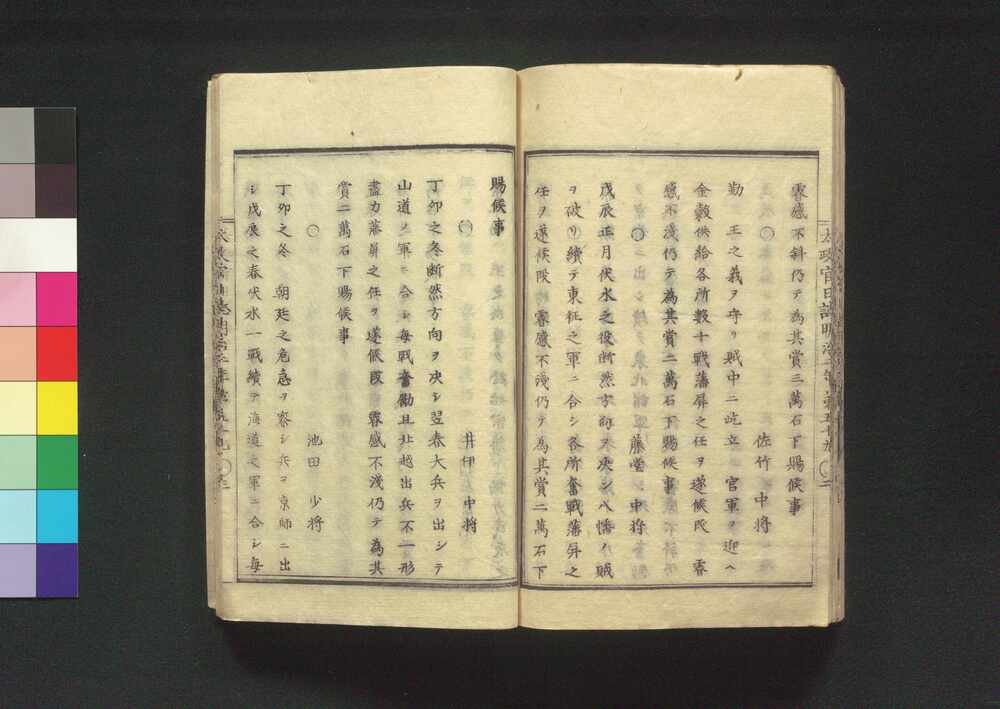 叡感不斜仍テ為其賞三萬石下賜候事
○ 佐竹 中将
勤 王之義ヲ守リ賊中ニ屹立シ官軍ヲ迎ヘ
金穀供給各所数十戰藩屏之任ヲ遂候段 叡
感不淺仍テ為其賞二萬石下賜候事
○ 藤堂 中将
戊辰正月伏水之役断然方向ヲ决シ八幡ノ賊
ヲ破リ續テ東征之軍ニ合シ各所奮戰藩屏之
任ヲ遂候段 叡感不淺仍テ為其賞二萬石下
賜候事
○ 井伊 中将
丁卯之冬断然方向ヲ决シ翌春大兵ヲ出シテ
山道ノ軍ニ合シ毎戰奮勵且北越出兵不一形
盡力藩屏之任ヲ遂候段 叡感不淺仍テ為其
賞二萬石下賜候事
○ 池田 少将
丁卯之冬 朝廷之危急ヲ察シ兵ヲ京師ニ出
シ戊辰之春伏水一戰續テ海道之軍ニ合シ毎